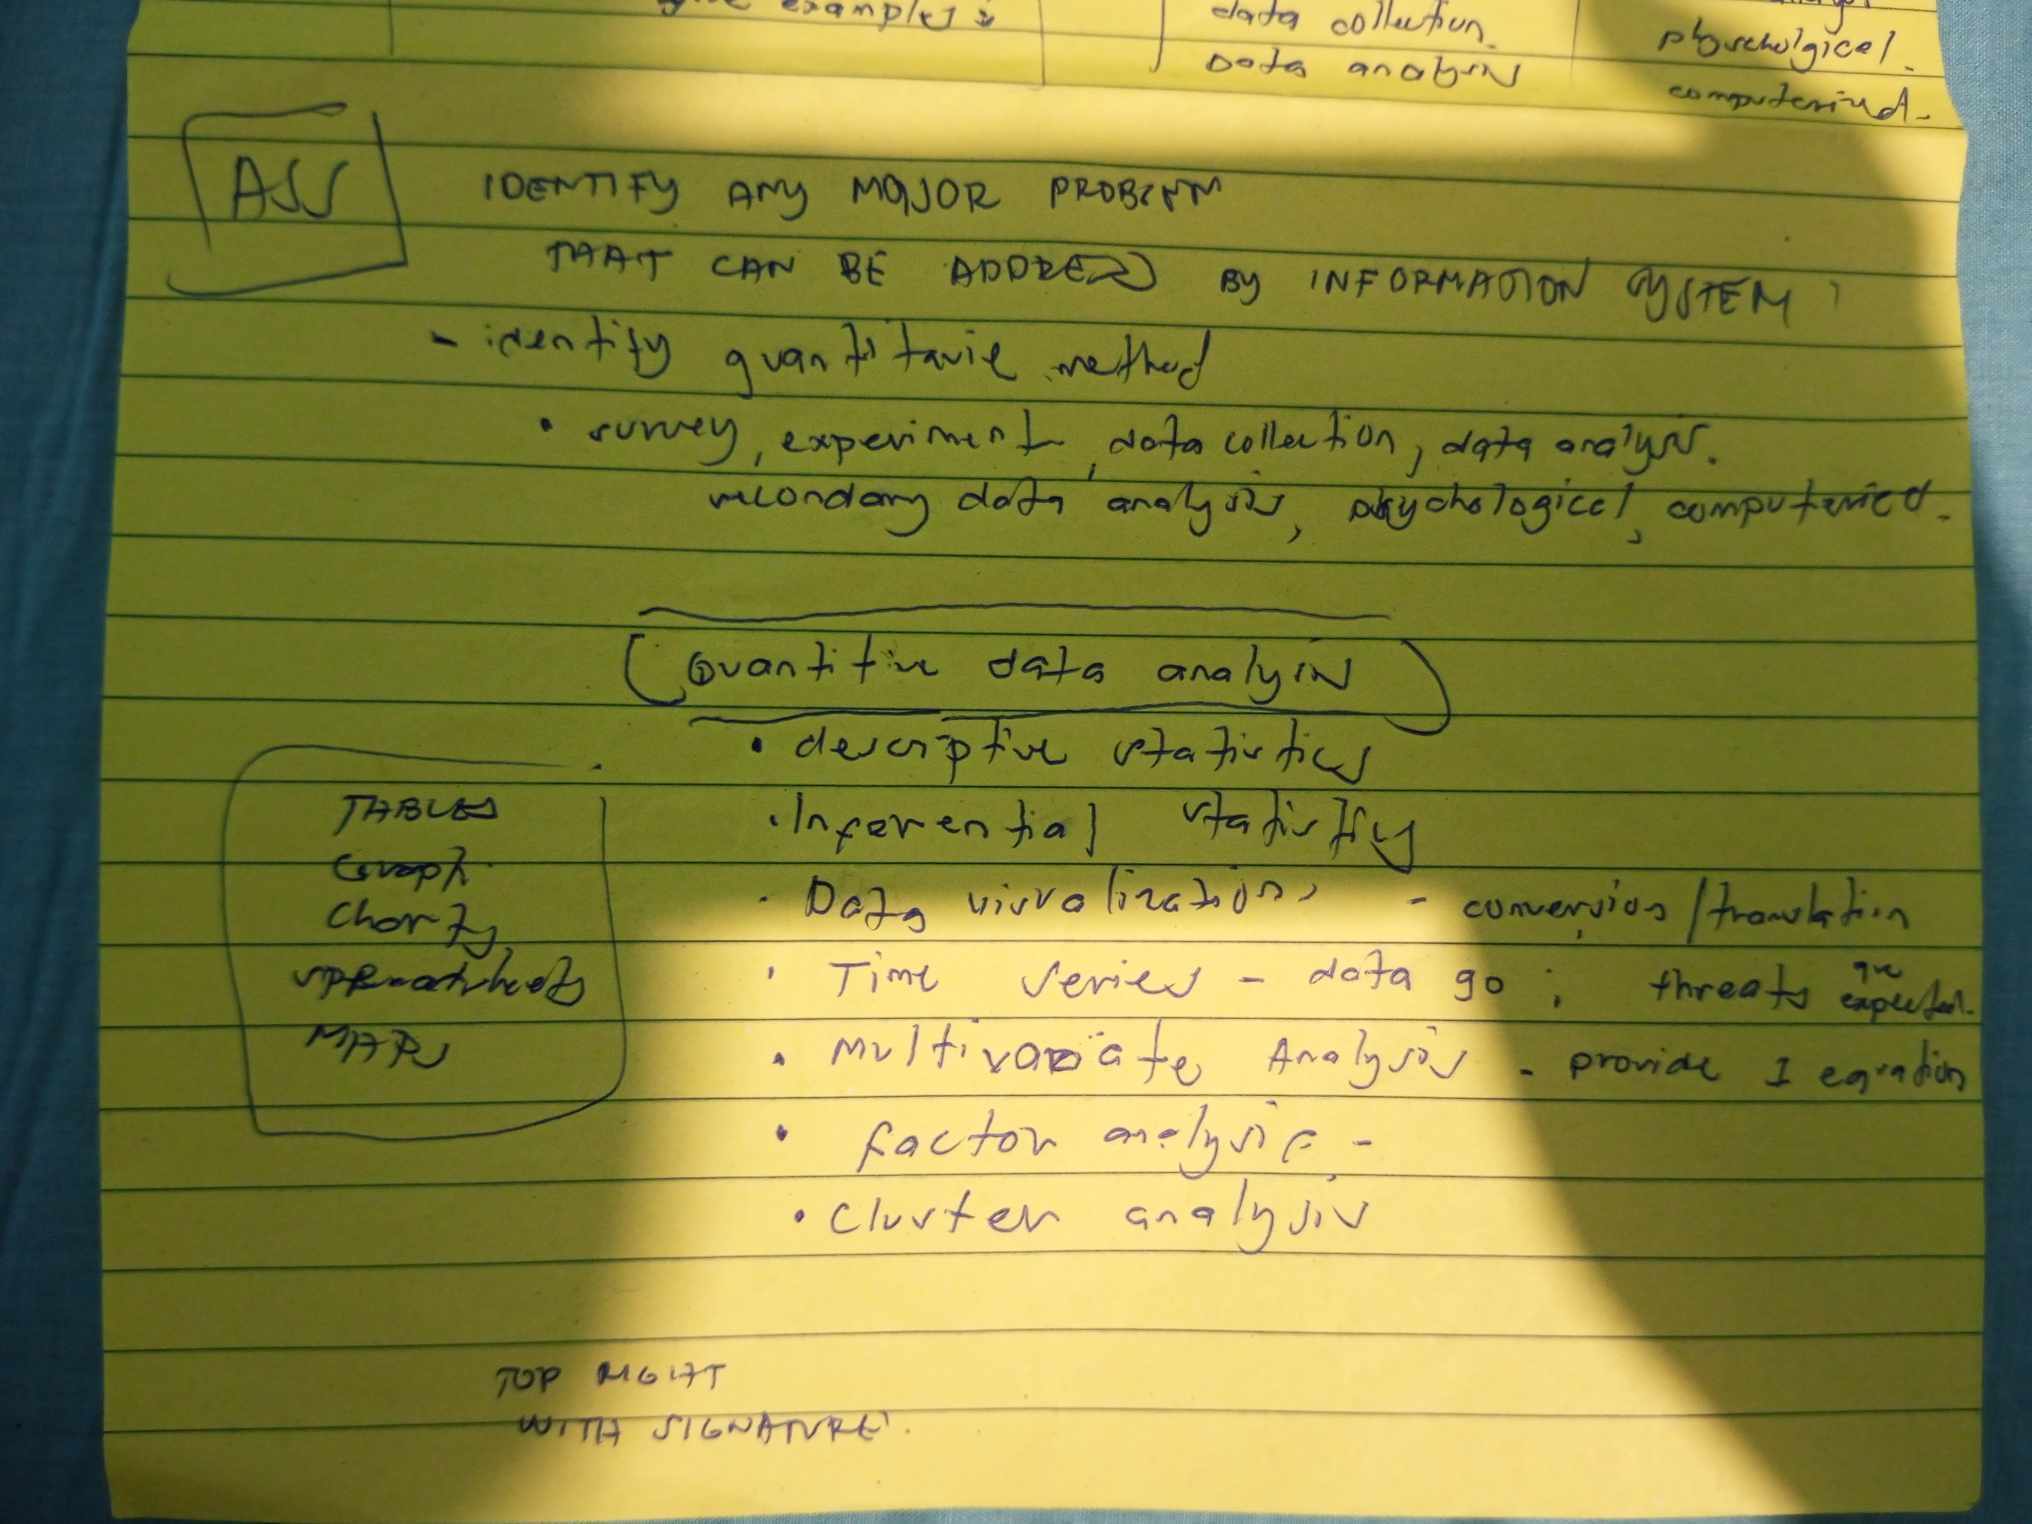 examples:
data collection.
Data analysis
physcholgical.
computerized.
ASS
IDENTIFY ANY MAJOR PROBLEM
THAT CAN BE ADDRES BY INFORMATION SYSTEM
- identify quantitavie method
• survey, experiment, data collection, data analysis.
secondary data analysis, psychological, computerized.
Quantitive data analysis
• descriptive statistics
• Inferential statistics
• Data visualizations - conversion/translation
• Time series - data go ; threats are expected.
• Multivariate Analysis - provide 1 equation
• factor analysis -
• cluster analysis
TABLES
Graph
Charts
MAPS
TOP
WITH SIGNATURE